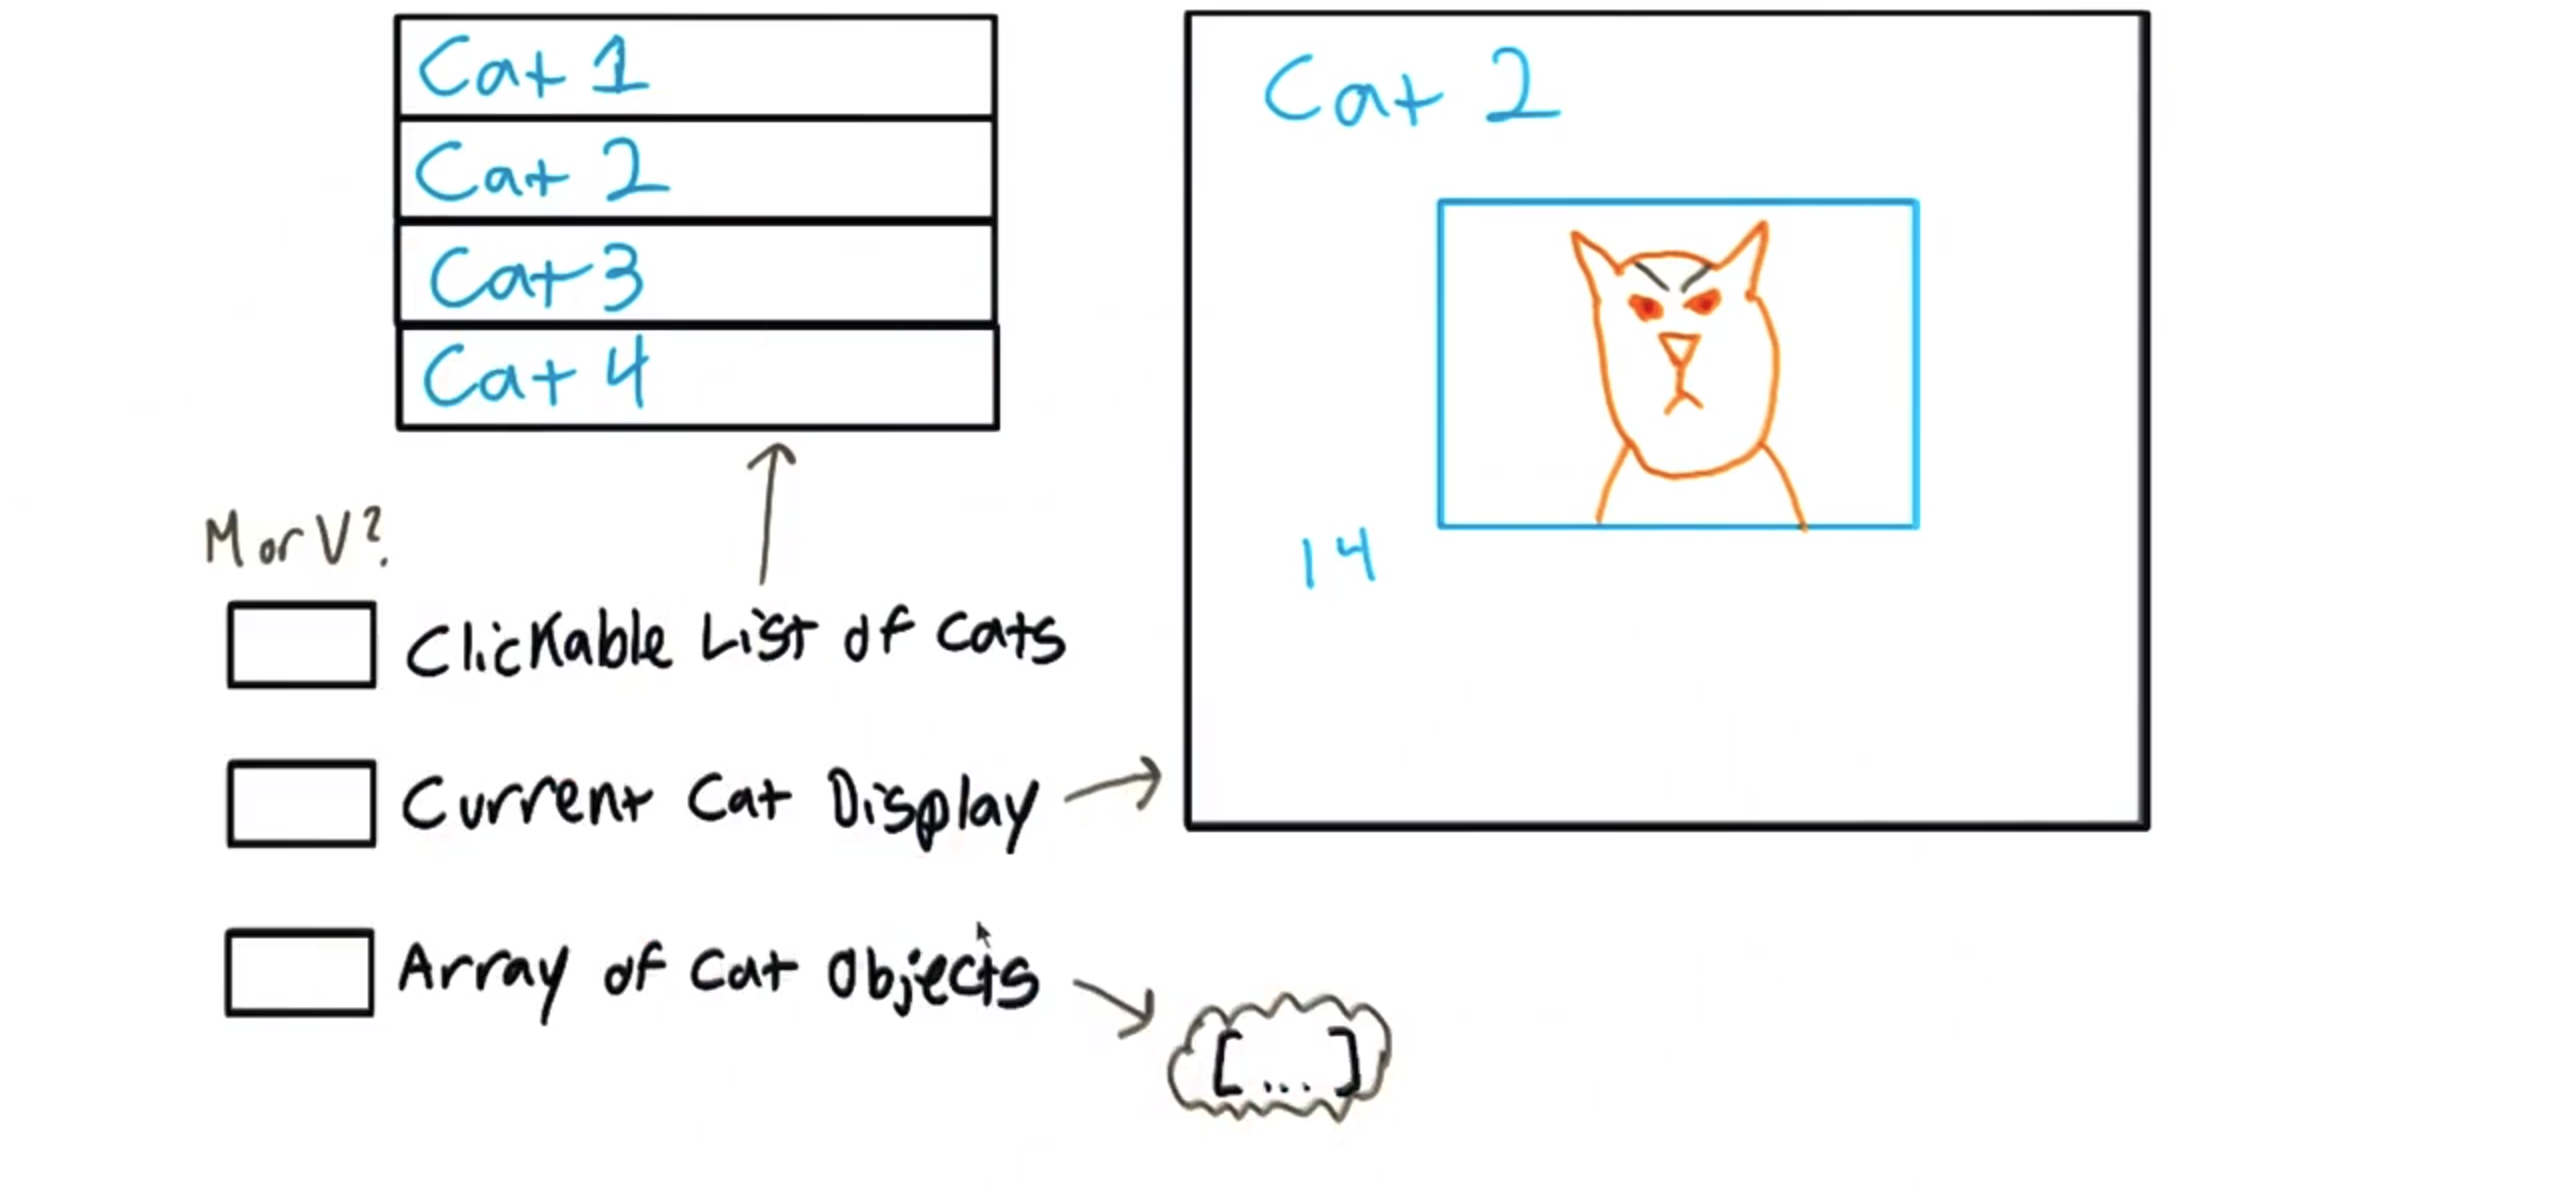 Cat 1
Cat 2
Cat 3
Cat 4
Cat 2
14
M or V?
Clickable List of Cats
Current Cat Display
Array of Cat Objects
[...]